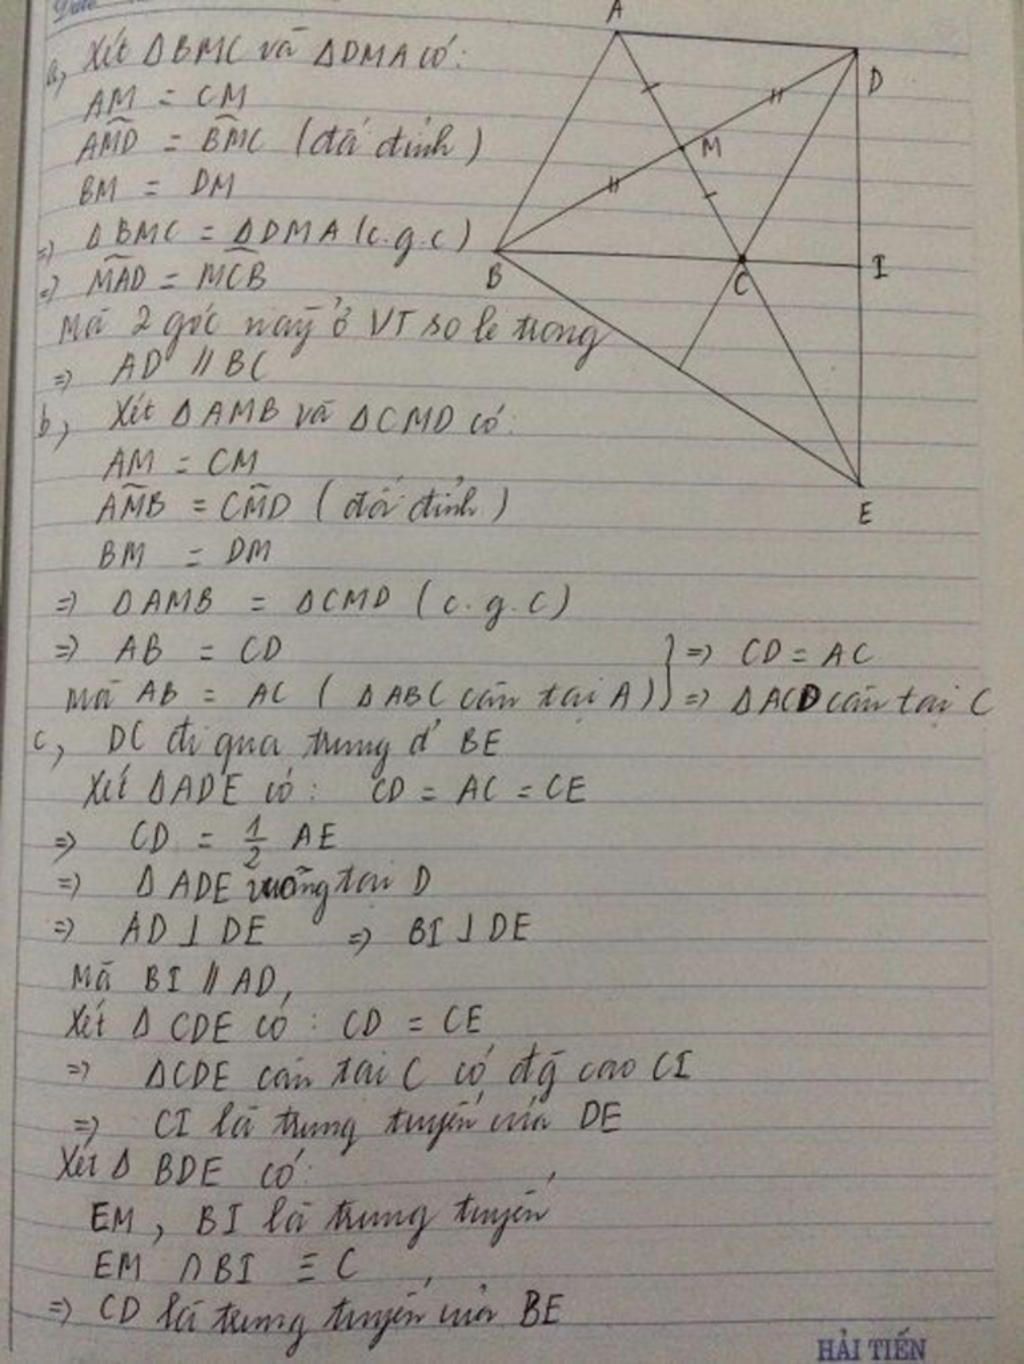 Date
A
a, Xét ΔBMC và ΔDMA có:
D
AM = CM
M
AM̂D = BM̂C (đối đỉnh)
BM = DM
=> ΔBMC = ΔDMA (c.g.c)
B
C
I
=> MÂD = MĈB
Mà 2 góc này ở VT so le trong
=> AD // BC
b, Xét ΔAMB và ΔCMD có:
AM = CM
AM̂B = CM̂D (đối đỉnh)
E
BM = DM
=> ΔAMB = ΔCMD (c.g.c)
=> AB = CD } => CD = AC
Mà AB = AC (ΔABC cân tại A) => ΔACD cân tại C
c, DC đi qua trung đ' BE
Xét ΔADE có: CD = AC = CE
=> CD = 1/2 AE
=> ΔADE vuông tại D
=> AD ⊥ DE => BI ⊥ DE
Mà BI // AD,
Xét ΔCDE có: CD = CE
=> ΔCDE cân tại C có đg cao CI
=> CI là trung tuyến của DE
Xét Δ BDE có:
EM, BI là trung tuyến
EM ∩ BI ≡ C
=> CD là trung tuyến của BE
HẢI TIẾN